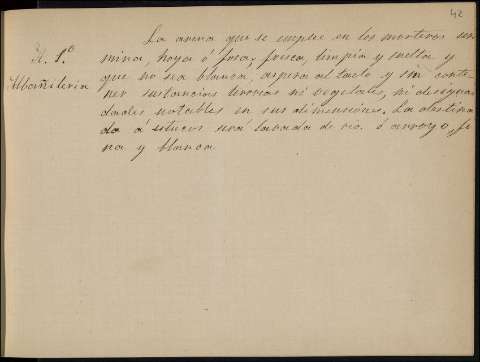 42
La arena que se emplee en los morteros será
N. 1.º
mina, hoya ó fosa, fresca, limpia y suelta y
Albañileria
que no sea blanca, áspera al tacto y sin conte-
ner sustancias terrosas ni vegetales, ni desigual-
dades notables en sus dimensiones. La destina-
da á estucos será lavada de rio ó arroyo, fi-
na y blanca